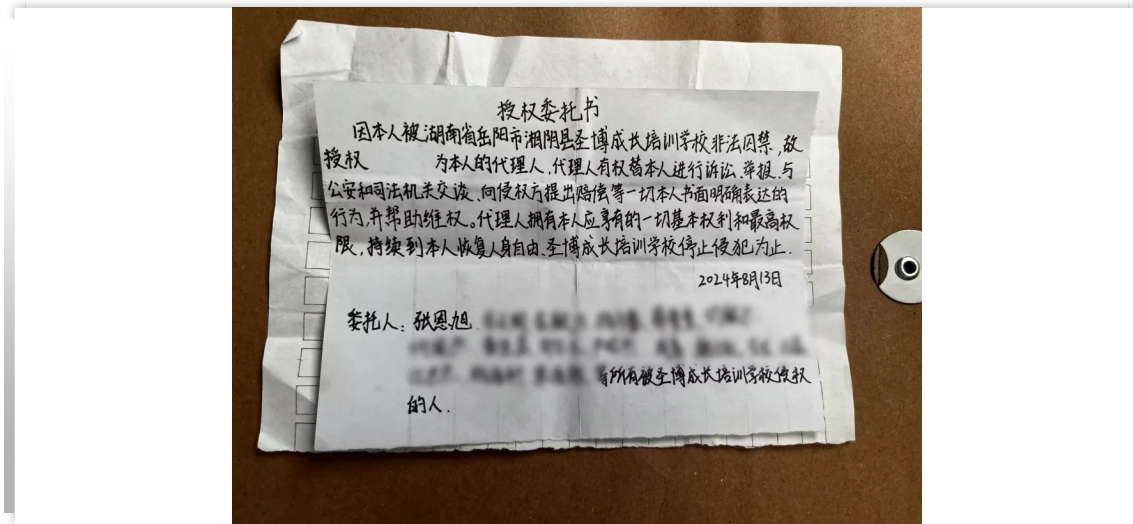 授权委托书
因本人被湖南省岳阳市湘阴县圣博成长培训学校非法囚禁，故
授权 为本人的代理人，代理人有权替本人进行诉讼、举报、与
公安和司法机关交谈、向侵权方提出赔偿等一切本人书面明确表达的
行为，并帮助维权。代理人拥有本人应享有的一切基本权利和最高权
限，持续到本人恢复人身自由、圣博成长培训学校停止侵犯为止．
2024年8月13日
委托人：张恩旭
等所有被圣博成长培训学校侵权
的人．